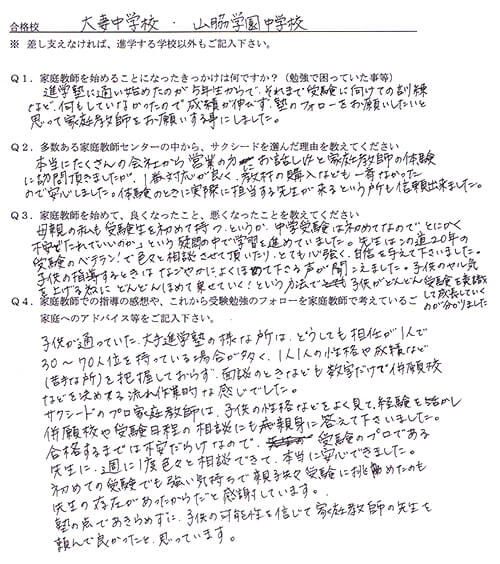 合格校 大妻中学校 ・ 山脇学園中学校
※ 差し支えなければ、進学する学校以外もご記入下さい。
Q1. 家庭教師を始めることになったきっかけは何ですか？（勉強で困っていた事等）
進学塾に通い始めたのが5年生からで、それまで受験に向けての訓練
など、何もしていなかったので成績が伸びず、塾のフォローをお願いしたいと
思って家庭教師をお願いする事にしました。
Q2. 多数ある家庭教師センターの中から、サクシードを選んだ理由を教えてください
本当にたくさんの会社から営業の方にお話しと家庭教師の体験
に訪問頂きましたが、1番対応が良く、教材の購入なども一番なかった
ので安心しました。体験のときに実際に担当する先生が来るという所も信頼出来ました。
Q3. 家庭教師を始めて、良くなったこと、悪くなったことを教えてください
母親の私も受験生を初めて持つというか、中学受験は初めてなので、とにかく
不安「だれていいのか」という疑問の中で学習を進めていました。先生はこの道20年の
受験のベテラン！で色々と相談させて頂いたり、とても心強く、自信を与えて下さいました。
子供の指導するときは なごやかによくほめて下さる声が聞こえました。子供のやる気
を上げる為に どんどんほめて乗せていく！という方法で 子供がどんどん受験を意識
して成長していく
のが分かりました
Q4. 家庭教師での指導の感想や、これから受験勉強のフォローを家庭教師で考えているご
家庭へのアドバイス等をご記入下さい。
子供が通っていた、大手進学塾の様な所は、どうしても担任が1人で
30〜70人位を持っている場合が多く、1人1人の性格や成績など
(苦手な所)を把握しておらず、面談のときなども数字だけで併願校
などを決めてる流れ作業的な感じでした。
サクシードのプロ家庭教師は、子供の性格などをよく見て、経験を活かし
併願校や受験日程の相談にも親身に答えて下さいました。
合格するまでは不安だらけなので、受験のプロである
先生に、週に1度色々と相談できて、本当に安心できました。
初めての受験でも強い気持ちで親子共々受験に挑めたのも
先生の存在があったからだと感謝しています。
塾の点であきらめずに、子供の可能性を信じて家庭教師の先生を
頼んで良かったと、思っています。